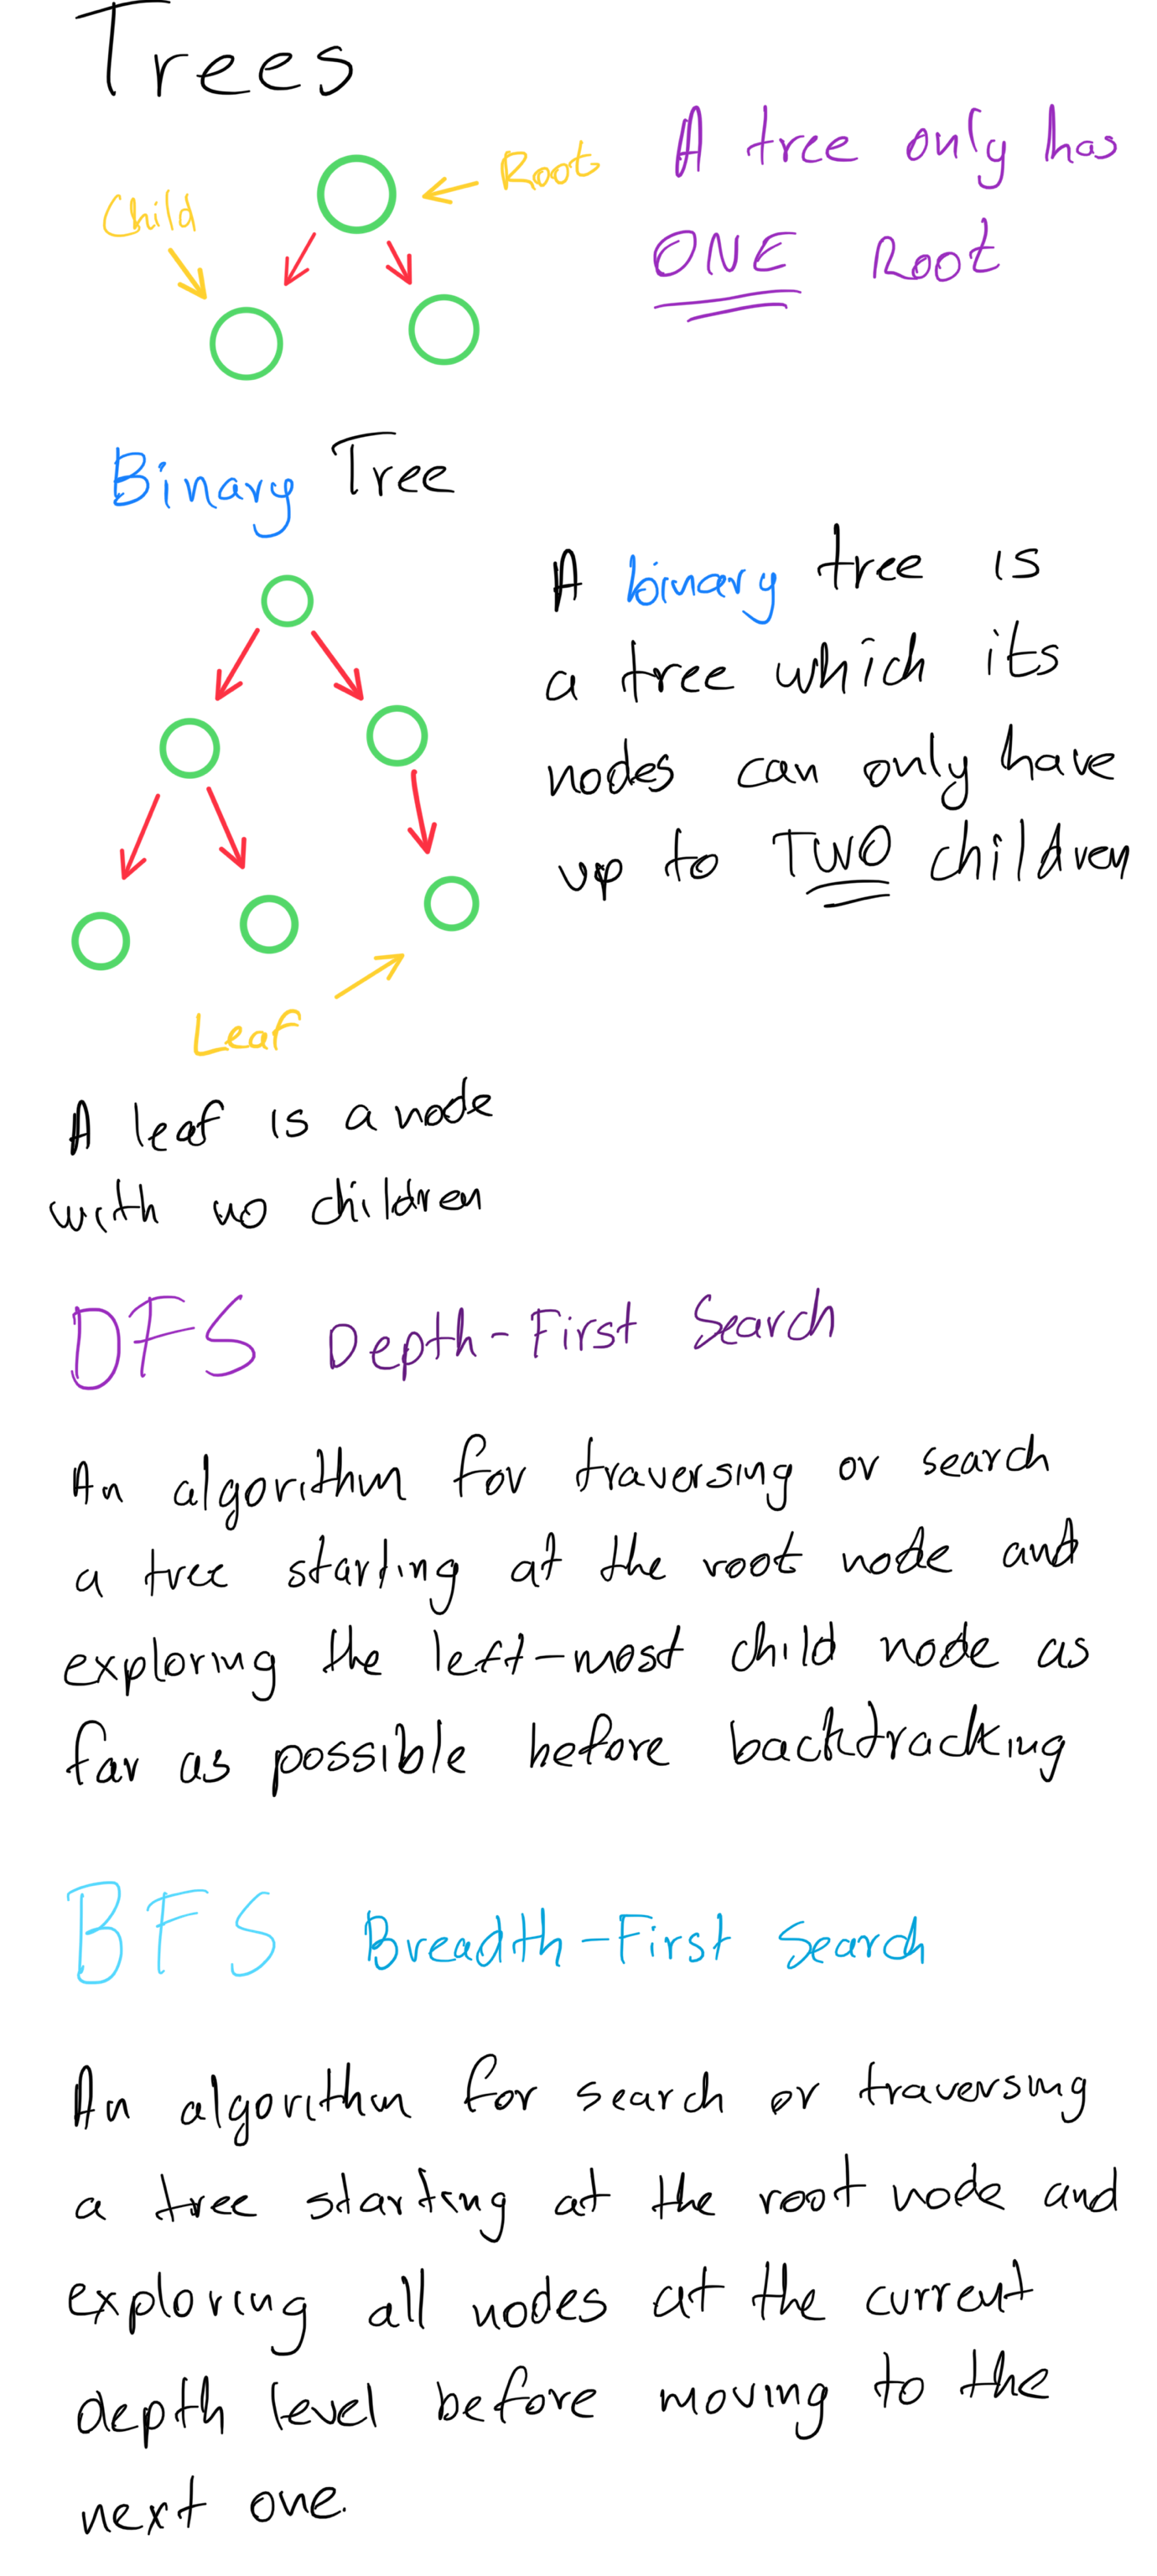 Trees
Child
Root
A tree only has
ONE Root
Binary Tree
A binary tree is
a tree which its
nodes can only have
up to TWO children
Leaf
A leaf is a node
with no children
DFS Depth-First Search
An algorithm for traversing or search
a tree starting at the root node and
exploring the left-most child node as
far as possible before backtracking
BFS Breadth-First Search
An algorithm for search or traversing
a tree starting at the root node and
exploring all nodes at the current
depth level before moving to the
next one.